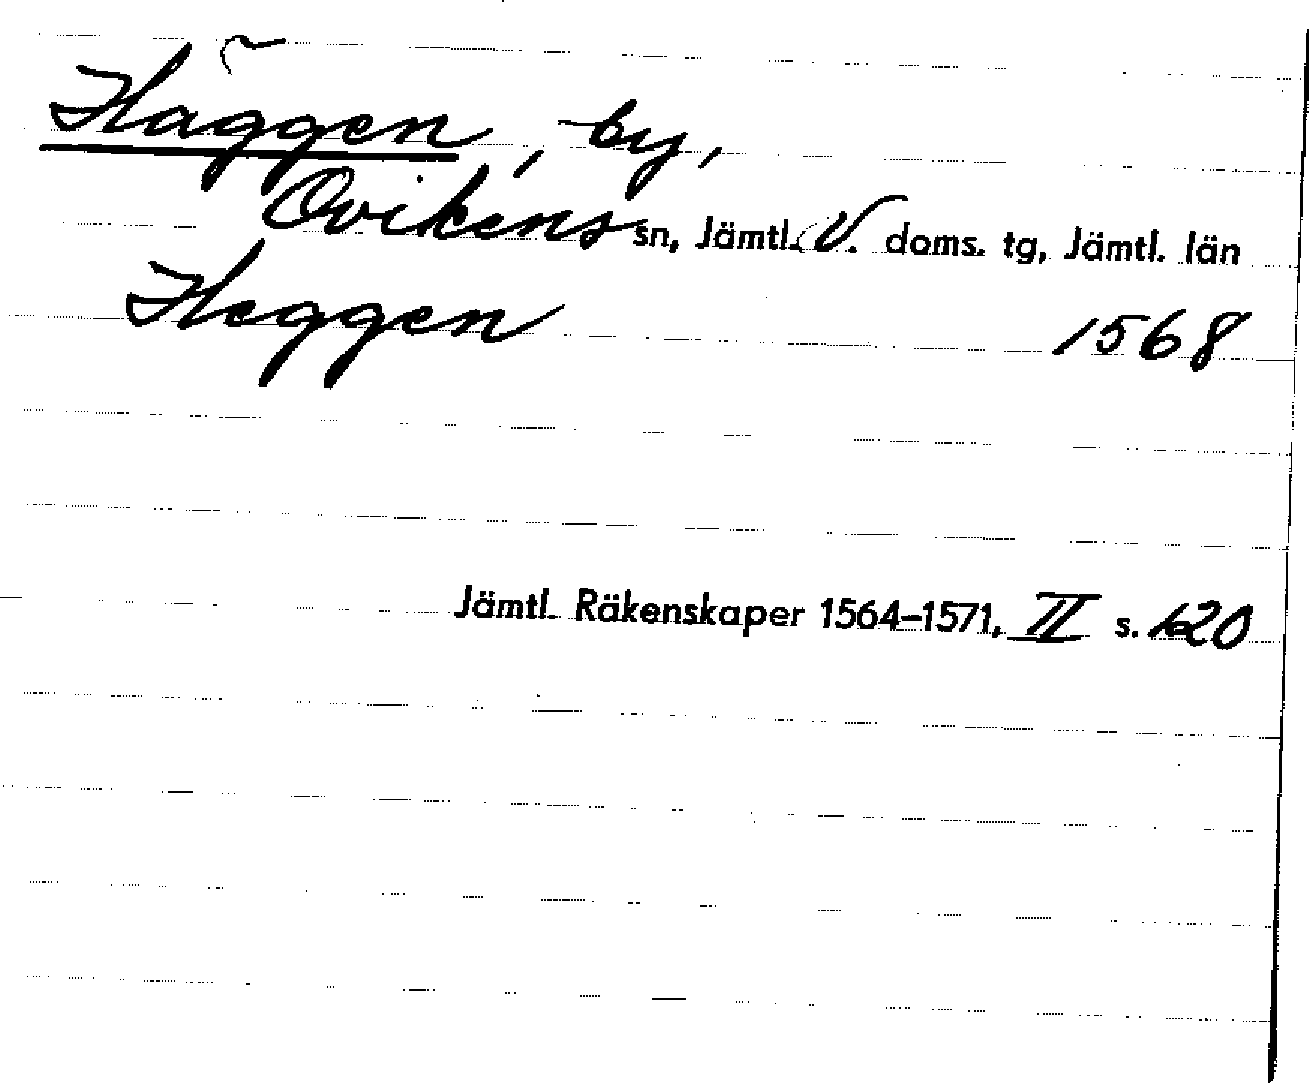 Häggen, by,
Ovikens sn, Jämtl. V. doms. tg, Jämtl. län
Heggen 1568
Jämtl. Räkenskaper 1564–1571, II s. 120